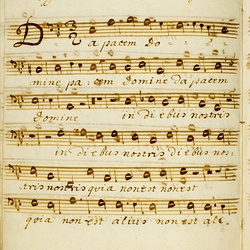 Da pacem do
mine pa: cem domine da pacem
domine in diebus nostris
in diebus nostris diebus nos:
tris nostris quia non est non est
quia non est alius non est ali: